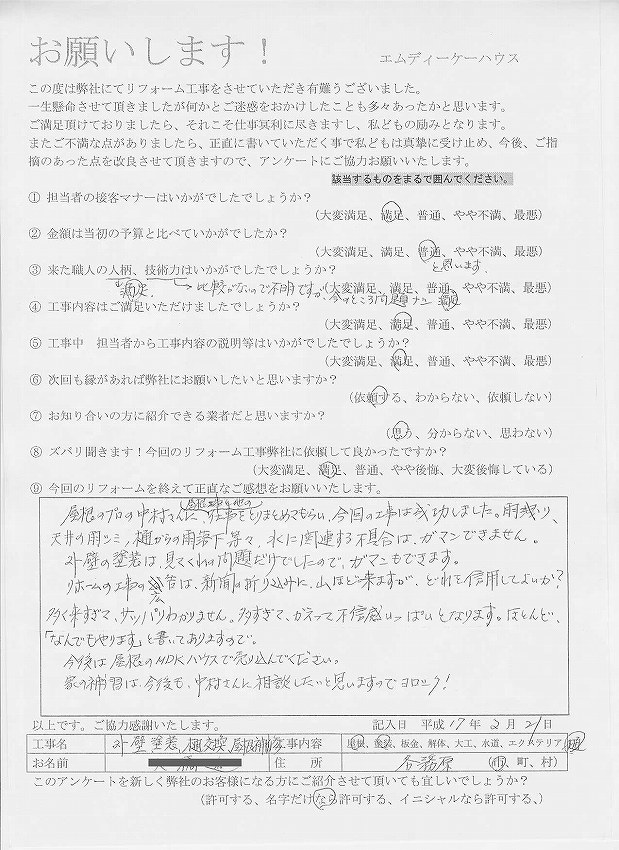 お願いします!
エムディーケーハウス
この度は弊社にてリフォーム工事をさせていただき有難うございました。
一生懸命させて頂きましたが何かとご迷惑をおかけしたことも多々あったかと思います。
ご満足頂けておりましたら、それこそ仕事冥利に尽きますし、私どもの励みとなります。
またご不満な点がありましたら、正直に書いていただく事で私どもは真摯に受け止め、今後、ご指
摘のあった点を改良させて頂きますので、アンケートにご協力お願いいたします。
該当するものをまるで囲んでください。
① 担当者の接客マナーはいかがでしたでしょうか?
(大変満足、満足、普通、やや不満、最悪)
② 金額は当初の予算と比べていかがでしたか?
(大変満足、満足、普通、やや不満、最悪)
と思います.
③ 来た職人の人柄、技術力はいかがでしたでしょうか?
満足.
→ 比較がないので不明ですが、今のところ問題ナシ 満足
(大変満足、満足、普通、やや不満、最悪)
④ 工事内容はご満足いただけましたでしょうか?
(大変満足、満足、普通、やや不満、最悪)
⑤ 工事中 担当者から工事内容の説明等はいかがでしたでしょうか?
(大変満足、満足、普通、やや不満、最悪)
⑥ 次回も縁があれば弊社にお願いしたいと思いますか?
(依頼する、わからない、依頼しない)
⑦ お知り合いの方に紹介できる業者だと思いますか?
(思う、分からない、思わない)
⑧ ズバリ聞きます!今回のリフォーム工事弊社に依頼して良かったですか?
(大変満足、満足、普通、やや後悔、大変後悔している)
⑨ 今回のリフォームを終えて正直なご感想をお願いいたします。
屋根工事&他の
屋根のプロの中村さんに、仕事をとりまとめてもらい、今回の工事は成功しました。雨残り、
天井の雨ツミ、樋からの雨落下等々、水に関連する不具合は、ガマンできません。
外壁の塗装は、見てくれの問題だけでしたので、ガマンもできます。
リホームの工事の広告は、新聞の折り込みに、山ほど来ますが、どれを信用してよいか?
多く来すぎて、サッパリわかりません。多すぎて、かえって不信感いっぱいとなります。ほとんど、
「なんでもやります」と書いてありますので。
今後は屋根のMDKハウスで売り込んでください。
家の補習は、今後も、中村さんに相談したいと思いますのでヨロシク!
以上です。ご協力感謝いたします。
記入日 平成17年2月21日
工事名 外壁塗装, 樋交換, 屋根補修
工事内容 屋根、塗装、板金、解体、大工、水道、エクステリア、
お名前
住 所 各務原 (市、町、村)
このアンケートを新しく弊社のお客様になる方にご紹介させて頂いても宜しいでしょうか?
(許可する、名字だけなら許可する、イニシャルなら許可する、)